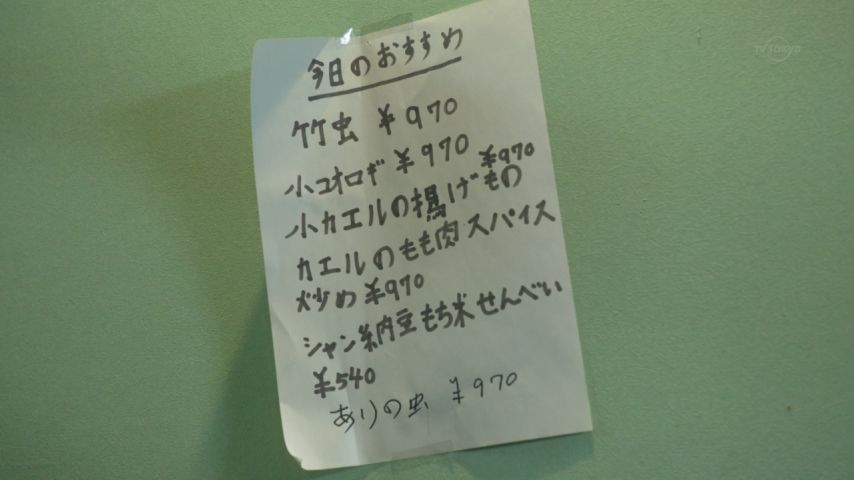 今日のおすすめ
竹虫 ¥970
小コオロギ ¥970
¥970
小カエルの揚げもの
カエルのもも肉スパイス
炒め ¥970
シャン納豆もち米せんべい
¥540
ありの虫 ¥970
TV Tokyo